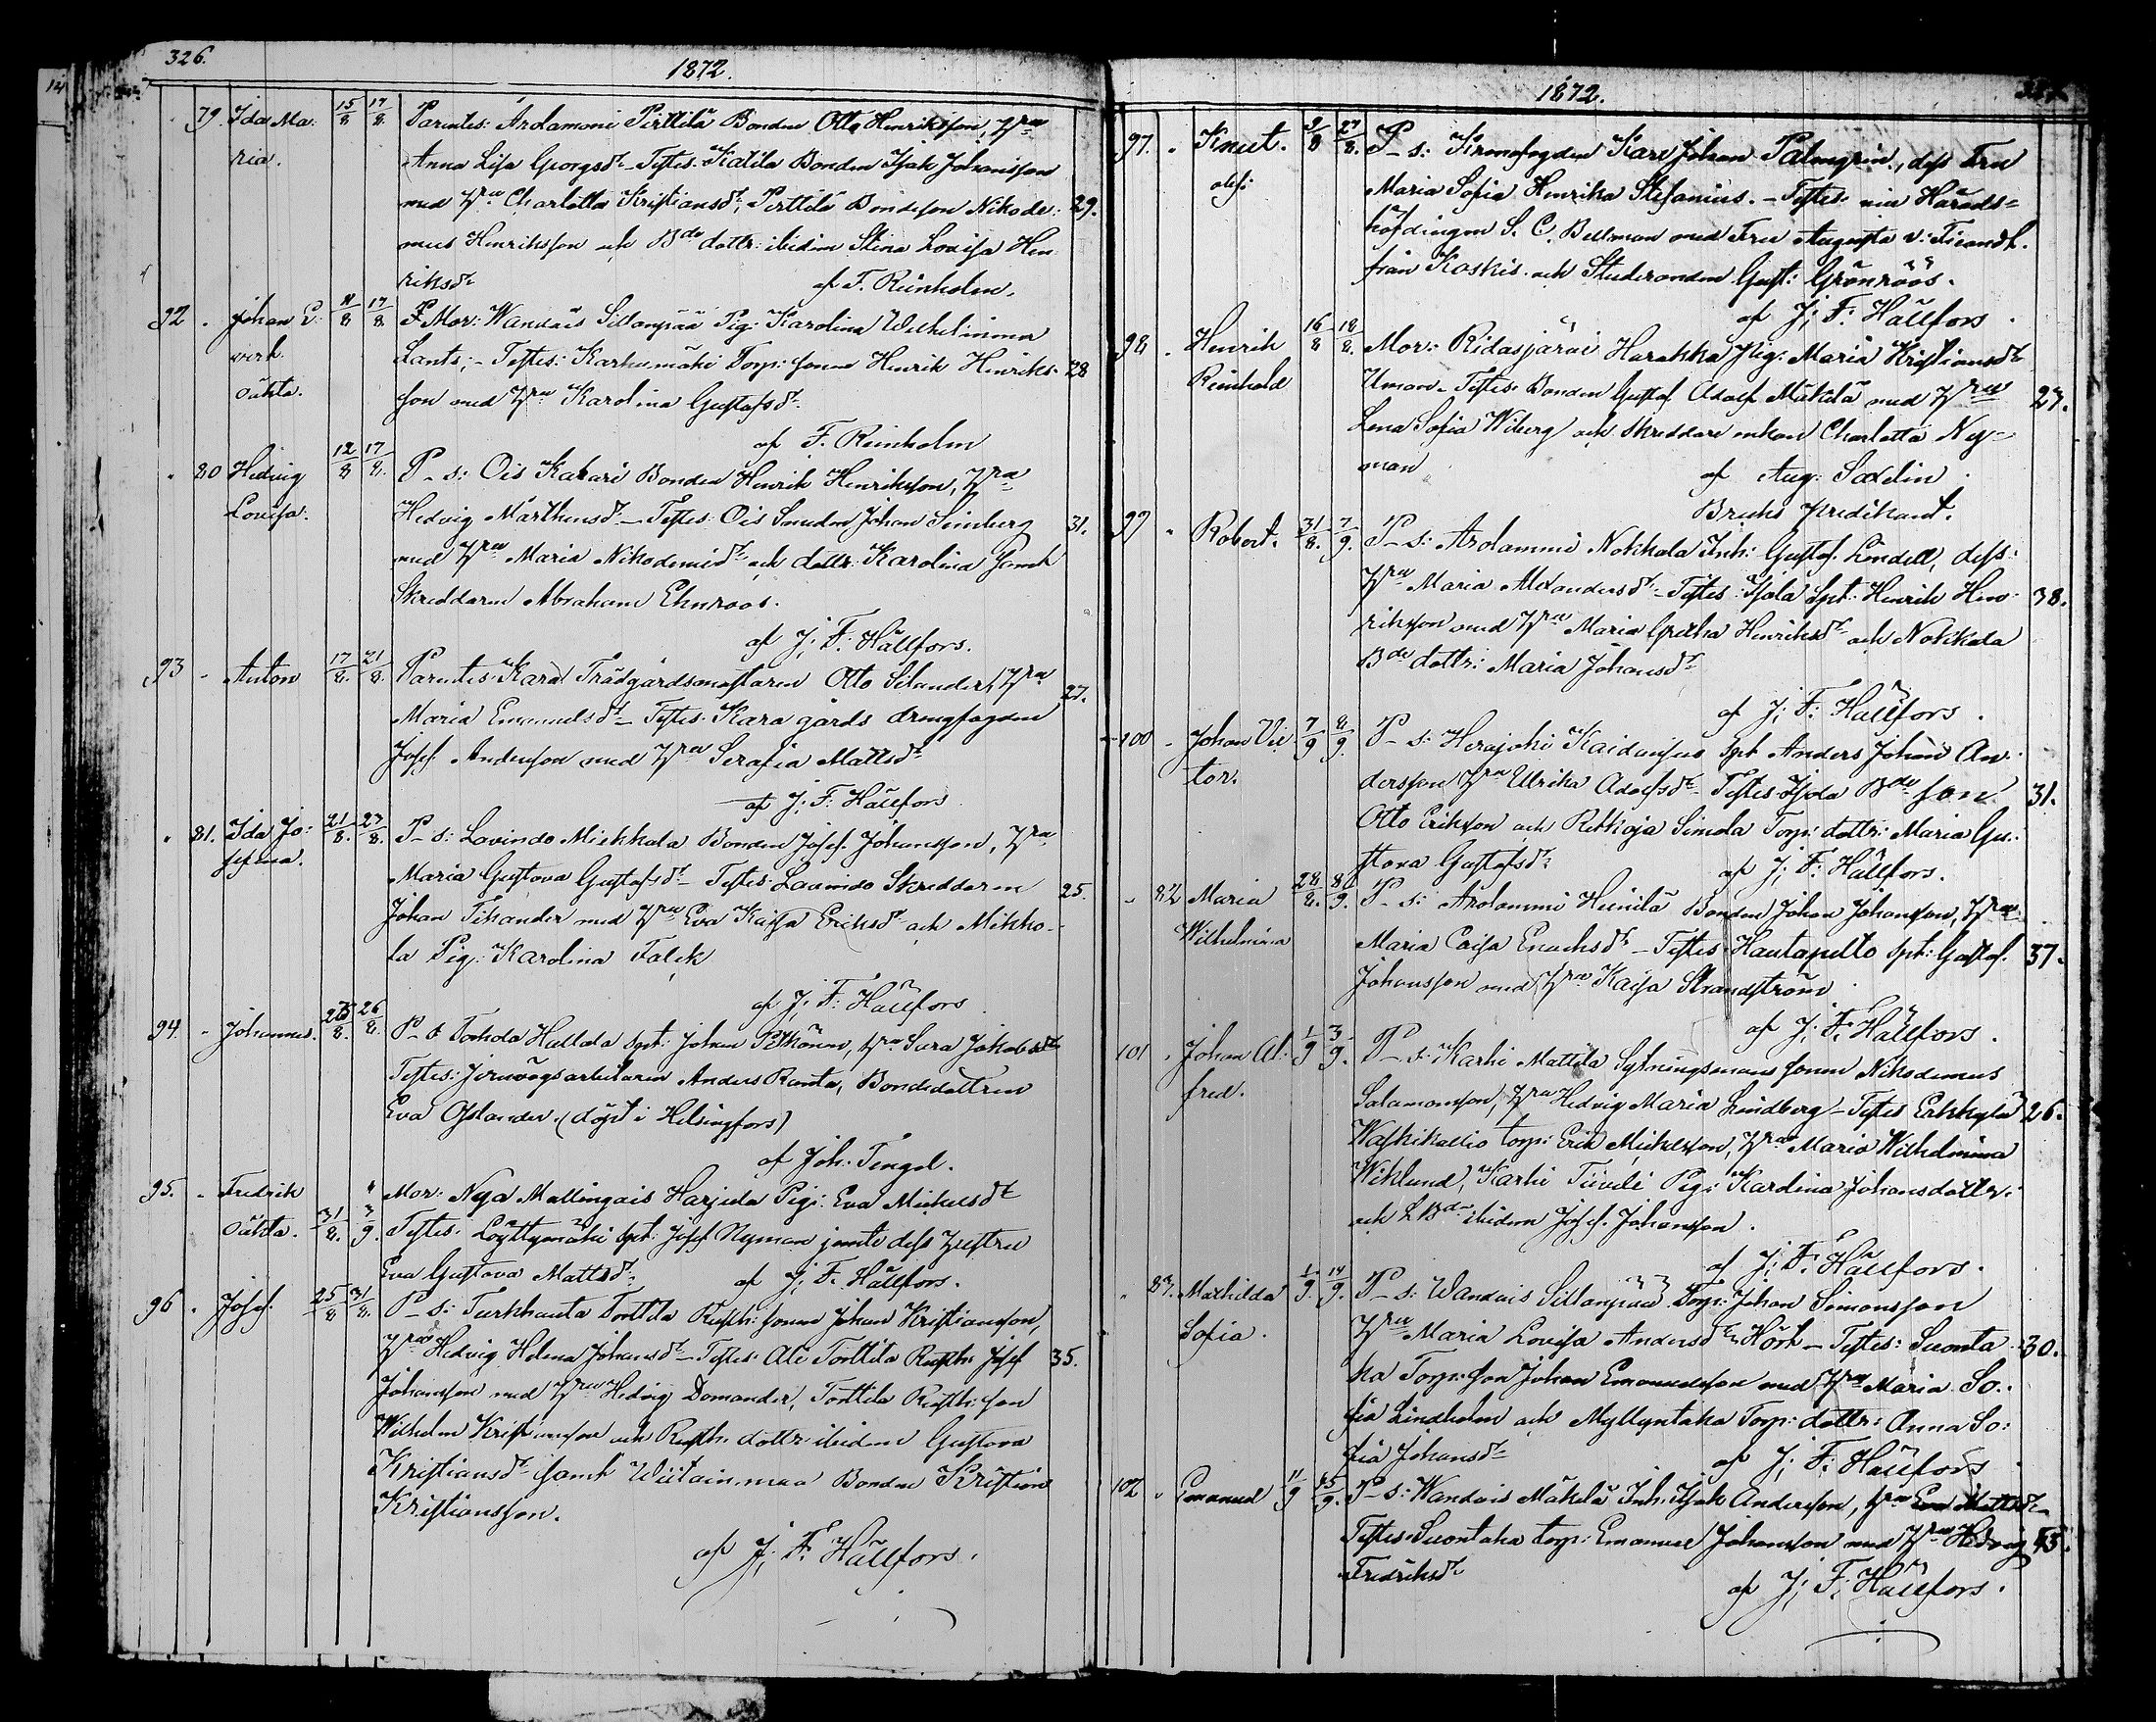 326.
1872.
79. Ida Ma: 15/8 17/8 Parentes: Arolamoni Pirttilä Bonden Otto Henriksson, H:ru
ria. Anna Lisa Georgsdr. Testes: Katila Bonden Isak Johansson
med H:ru Charlotta Kristiansdr, Pirttilä Bondeson Nikode: 29.
mus Henriksson och Bde dottr: ibidem Stina Lovisa Hen
riksdr af F. Reinholm.
92. Johan E: 11/8 17/8 Mor: Wandais Sillanpää Pig: Karolina Wilhelmina
verh. Lants; Testes: Karhumäki Torp: sonen Henrik Henriks- 28
oäkta. son med H:ru Karolina Gustafsdr.
af F. Reinholm
80 Hedvig 12/8 17/8. P-s: Ois Kahari Bonden Henrik Henriksson, H:ru
Lovisa. Hedvig Mårthensdr. Testes: Ois Smeden Johan Simberg 31.
med H:ru Maria Nikodemidr och dottr: Karolina samt
Skreddaren Abraham Ehnroos.
af J; F: Hällfors.
93 Anton 17/8. 21/8. Parentes: Kara Trädgårdsmästaren Otto Silander, H:ru 27.
Maria Emanuelsdr. Testes: Kara gårds drengfogden
Josef Andersson med H:ru Serafia Mattsdr
af J; F: Hällfors
81. Ida Jo: 21/8. 23/8. P-s: Lavindo Mickkala Bonden Josef Johansson, H:ru
sefina. Maria Gustava Gustafsdr. Testes: Lavindo Skreddaren 25.
Johan Tikander med H:ru Eva Kaisa Eriksdr och Mikko-
la Pig: Karolina Falck
af J; F: Hällfors
94. Johannes. 8. 26/8. P-s Torhola Hallala Spt: Johan Pitkänen, H:ru Sara Jakobsdr
Testes: Jernvägsarbetaren Anders Ranta, Bondedottren
Eva Oslander. (döpt i Helsingfors)
af Joh: Tengel.
95. Fredrik Mor: Nya Mallingais Harjula Pig: Eva Mickelsdr
oäkta. 31/8. 3/9. Testes: Löyttymäki Spt: Josef Nyman jemte dess hustru
Eva Gustava Mattsdr. af J; F. Hällfors.
96. Josef. 25/8 31/8. P-s: Turkhauta Tonttila Rusth: sonen Johan Kristiansson,
H:ru Hedvig Helena Johansdr. Testes: Ali Tonttila Rusth: Josef 35.
Johansson med H:ru Hedvig Domander, Tonttila Rusth: son
Wilhelm Kristiansson och Rusth. dottr ibidem Gustava
Kristiansdr samt Wiitainmaa Bonden Kristian
Kristiansson.
af J; F. Hällfors.
1872.
97. Knut. 9/8 27/8. P-s: Kronofogden Karl Johan Palmgrén, dess Fru
Maria Sofia Henrika Stefanius. Testes: vice Härads=
höfdingen S. C. Bellman med Fru Augusta v: Ticandt.
från Koskis och Studeranden Gust: Grönroos.
af J; F: Hällfors.
98. Henrik 16/8 18/8. Mor: Ridasjärvi Harakka Pig: Maria Kristiansdr
Reinhold Testes: Bonden Gustaf Adolf Mäkilä med H:ru 27.
Lena Sofia Wiberg och skreddare enkan Charlotta Ny=
man af Aug: Saxelin
Bruks predikant.
99 Robert. 31/8. 7/9. P-s: Arolammi Nokkala Inh: Gustaf Lindell, dess
H:ru Maria Alexandersdr. Testes: Isola Spt: Henrik Hen- 38.
riksson med H:ru Maria Gretha Henriksdr och Nokkala
Bde dottr: Maria Johansdr
af J; F: Hällfors.
100 Johan Vic 7/9 8/9. P-s: Herajoki Spt Anders Johan An-
tor. dersson H:ru Ulrika Adolfsdr. Testes: Isola Bde son 31.
Otto Eriksson och Retkoja Simola Torp: dottr: Maria Gu:
stava Gustafsdr. af J; F: Hällfors.
82 Maria 28/8. 8/9. P-s: Arolammi Heinilä Bonden Johan Johansson, H:ru
Wilhelmina Maria Caisa Enochsdr. Testes: Hautapelto Spt: Gustaf. 37.
Johansson med H:ru Kaisa Strandström
af J; F: Hällfors.
101 Johan Al: 1/9 3/9. P-s: Karhi Mattila Sytningsmans sonen Nikodemus
fred. Salamonsson, H:ru Hedvig Maria Lindberg. Testes Erkkylä 26.
Waskikallio torp: Erik Mickelsson, H:ru Maria Wilhelmina
Wiklund, Karhi Pig: Karolina Johansdotter
och ibidem Josef Johansson.
af J; F: Hällfors.
83. Mathilda 1/9. 14/9. P-s: Wandais Sillanpää Torp: Johan Simonsson
Sofia. H:ru Maria Lovisa Andersdr Hörk. Testes: Suonta 30.
ka Torp: son Johan Emanuelsson med H:ru Maria So:
fia Lindholm och Myllyntaka Torp: dottr: Anna So:
fia Johansdr af J; F: Hällfors
102 Emanuel 11/9 15/9. P-s: Wandais Mäkelä Inh: Isak Andersson, H:ru Eva Mattsdr
Testes: Suontaka torp: Emanuel Johansson med H:ru Hedvig 45.
Fredriksdr
af J; F; Hällfors.